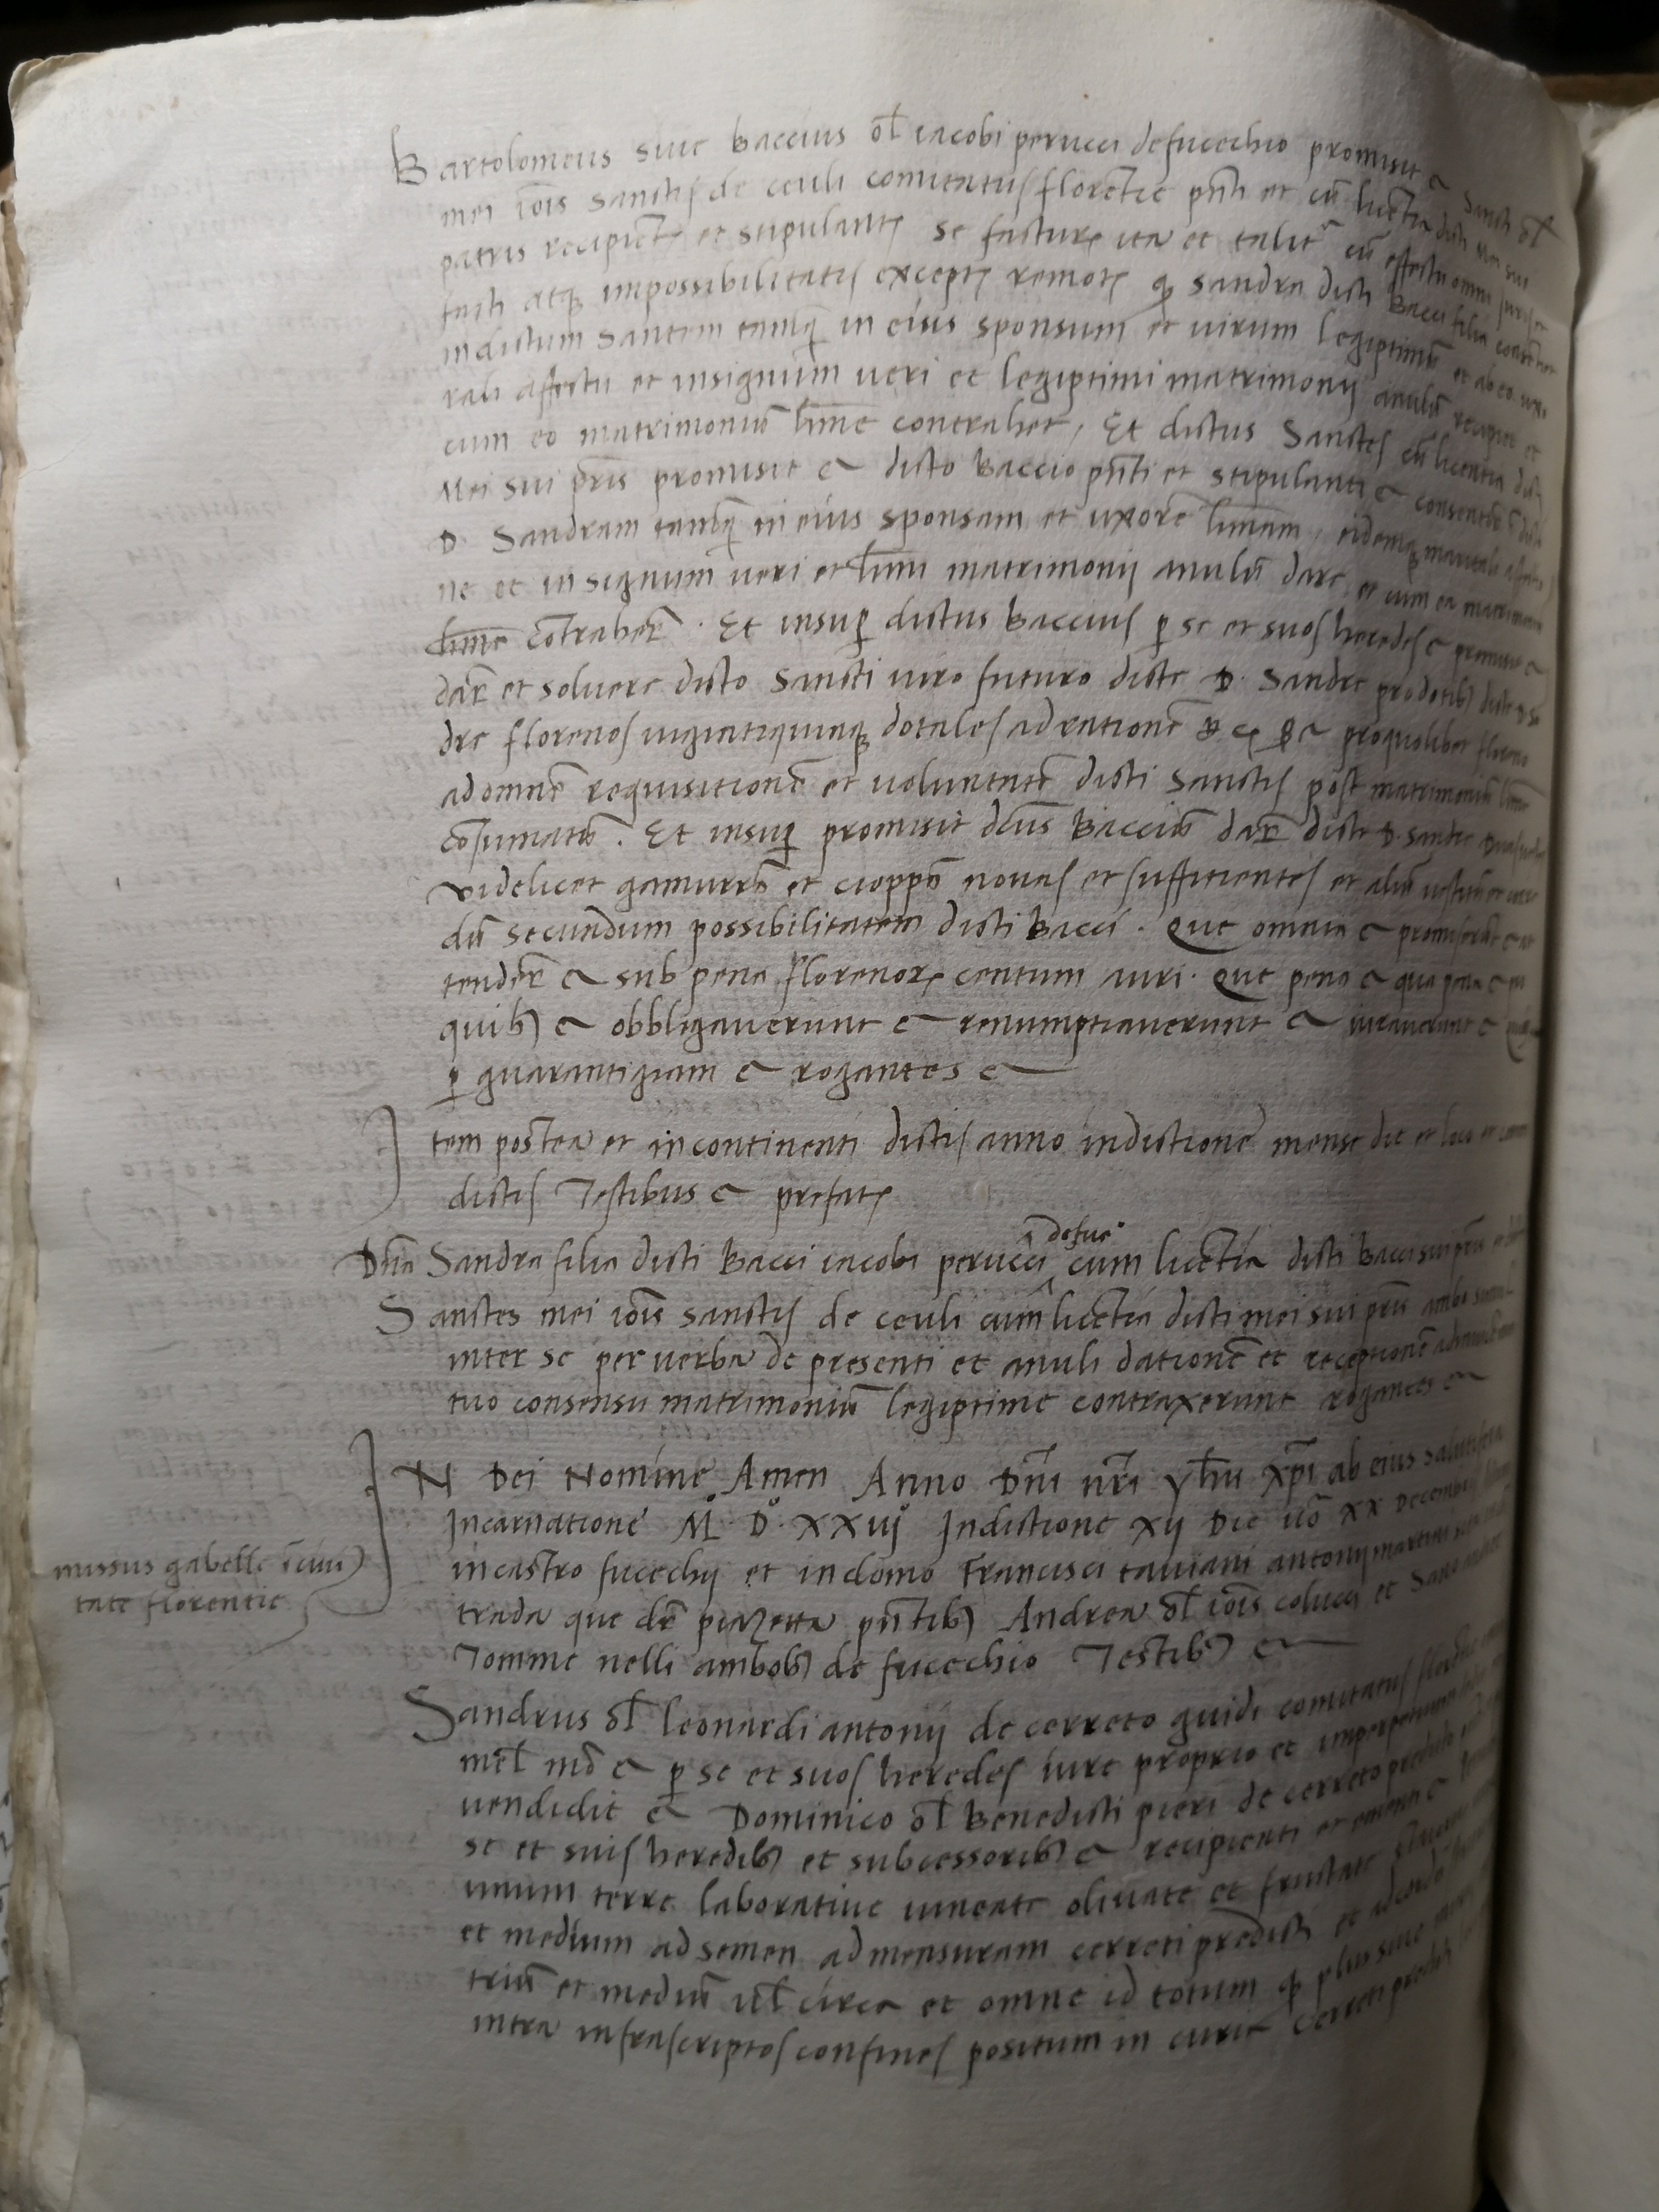 Bartolomeus sive Baccius ol̄ iacobi perucci de fucechio promisit &c Sancti ol̄
mei iois̄ Sanctis de ceuli comitatus florētie pn̄ti et cū licētia dicti mei sui
patris recipiēti et stipulanti se facturū ita et talitr̄ cū effectu omni
facti atq̨ impossibilitatis exceptōe remota q̨ Sandra dicti Bacci filia consentiet
in dictum Santem tanq̄ in eius sponsum et virum legiptimū et ab eo
rali affectu et in signum veri et legiptimi matrimonij anulū recipiet et
cum eo matrimoniū lim̄e contrahet, Et dictus Sanctes cū licentia dicti
Mei sui pr̄is promisit &c dicto Baccio pn̄ti et stipulanti &c consentire ī dictā
D. Sandram tanq̄ in eius sponsam et uxorē lim̄am, eidemq̨ maritali affectio
ne et in signum veri et lim̄i matrimonij anulū dare, et cum ea matrimoniū
lim̄e cōtraher̄. Et insup̱ dictus Baccius p̱ se et suos heredes &c promisit &c
dar̄ et solvere dicto Sancti viro futuro dicte D. Sandre pro dotib9 dicte D. Sā
dre florenos vigintiquinq̨ dotales ad rationē pro quolibet floreno
ad omnē requisitionē et voluntatē dicti Sanctis post matrimoniū lim̄e
cōsumatū. Et insup̱ promisit dcūs Bacciū dar̄ dicte D. Sandre
videlicet gamurrā et cioppā novas et sufficientes et aliū
dū secundum possibilitatem dicti Bacci. Que omnia &c promiserūt &c at
tender̄ &c sub pena florenorū centum auri. Que pena &c qua pena &c pro
quib9 &c obbligaverunt &c renumptiaverunt &c iuraverunt &c
p̱ guarantigiam &c rogantes &c
Item postea et incontinenti dictis anno indictione mense die et loco et coram
dictis Testibus &c prefatis
de fuc̊
Dn̄a Sandra filia dicti Bacci iacobi perucci cum licētia dicti Bacci sui pr̄is et
Sanctes mei iois̄ sanctis de ceuli cum licētia dicti mei sui pr̄is ambo
inter se per verba de presenti et anuli dationē et receptionē
tuo consensu matrimoniū legiptime contraxerunt rogantes &c
IN Dei Nomine Amen Anno Dn̄i nr̄i yhū xp̄i ab eius salutifera
Incarnatione M̊. D̊. XXVIJ̊ Indictione XIJ Die v̊o XX Decembris
missus gabelle ī civi
tate florentie
in castro fucechij et in domo Francisci taviani antonij martini
trada que dr̄ piazetta pn̄tib9 Andrea ol̄ iois̄ colucci et Sano
Tomme nelli ambob9 de fucechio Testib9 &c
Sandrus ol̄ leonardi antonij de cerreto guidi comitatus florētie
mel̄ mō &c p̱ se et suos heredes iure proprio et imperpetuum
vendidit &c Dominico ol̄ Benedicti pieri de cerreto predicto
se et suis heredib9 et subcessorib9 &c recipienti et ementi &c
unum terre laborative vineate olivate et fructate
et medium ad semen ad mensuram cerreti predicti et
triū et mediū vel̄ circa et omne id totum q̨ plus sive
intra infrascriptos confines positum in curie cerreti predicti